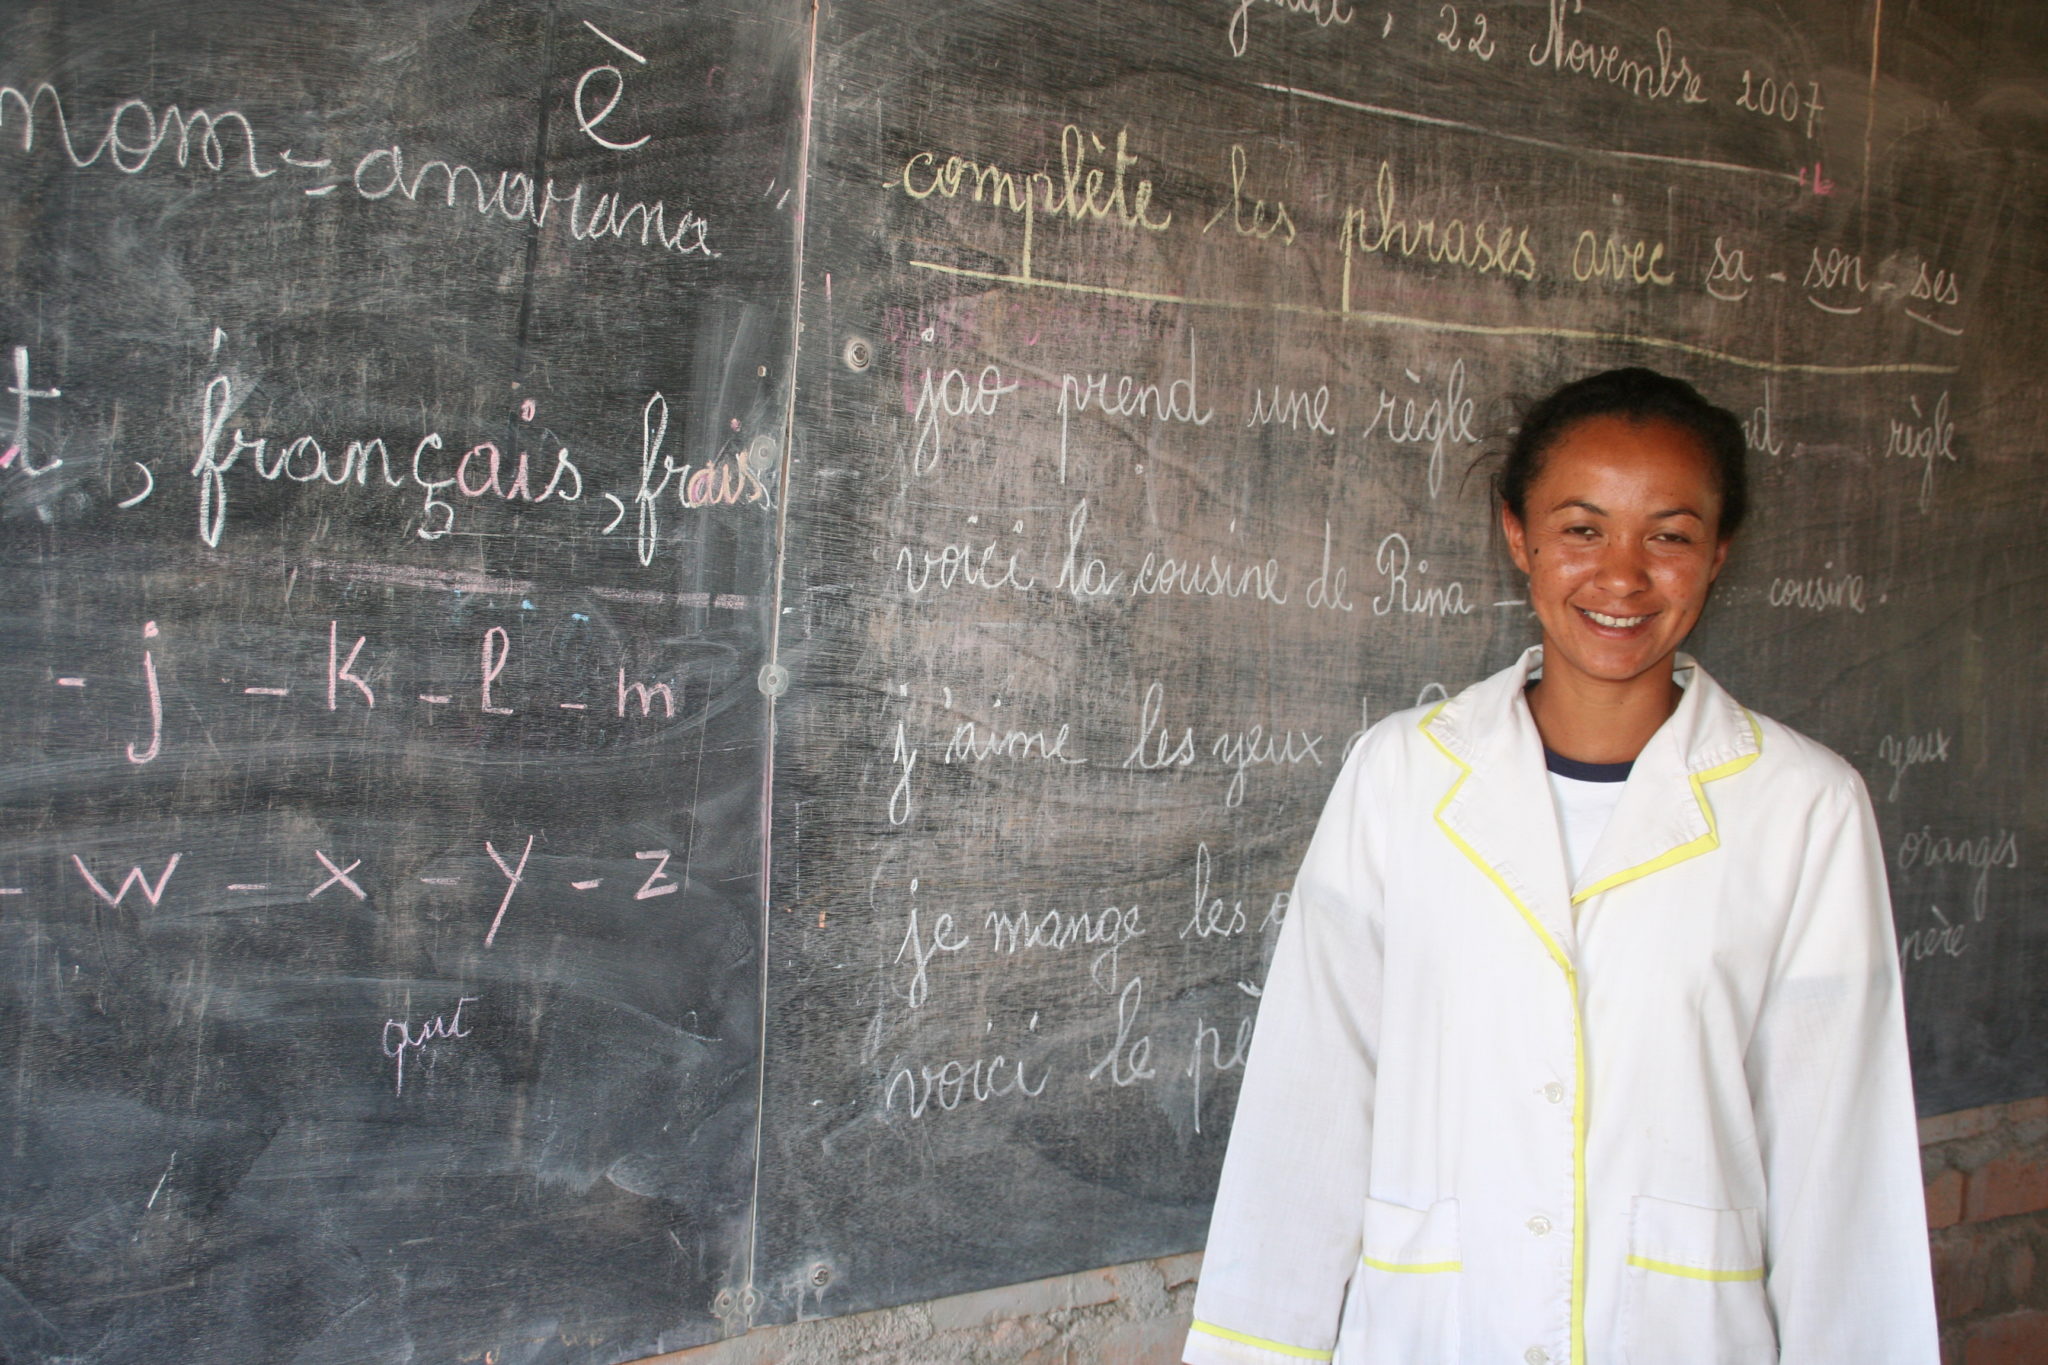 è
nom = anarana
t, français, frais
- j - k - l - m
- w - x - y - z
qui
22 Novembre 2007
complète les phrases avec sa - son - ses
jao prend une règle - nd ..... règle
voici la cousine de Rina - ..... cousine.
j'aime les yeux d yeux
je mange les o oranges
voici le pè père